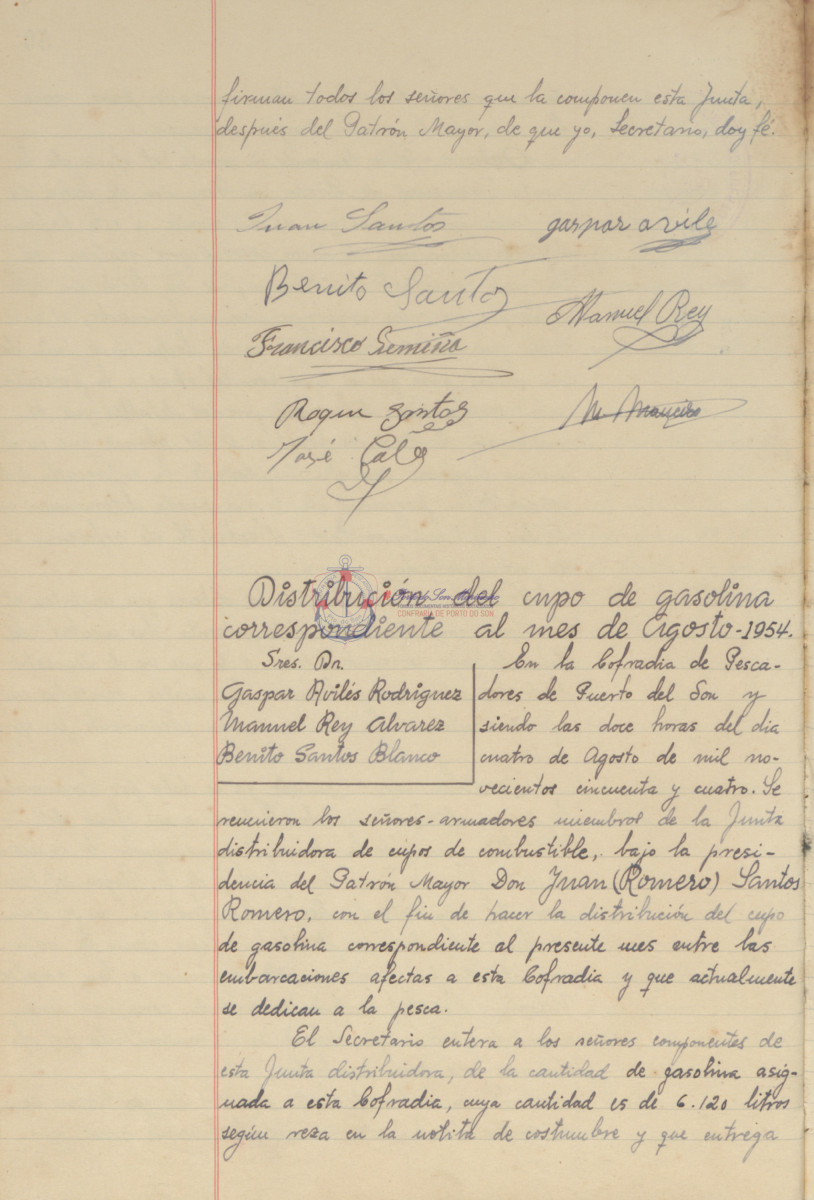 firman todos los señores que la componen esta Junta,
después del Patrón Mayor, de que yo, Secretario, doy fé.
Juan Santos
gaspar avile
Benito Santos
Manuel Rey
Francisco
Roque Santos
José
Distribución del cupo de gasolina
correspondiente al mes de Agosto-1954.
CONFRARÍA DE PORTO DO SON
Sres. Dn.
Gaspar Avilés Rodriguez
Manuel Rey Alvarez
Benito Santos Blanco
En la Cofradia de Pesca-
dores de Puerto del Son y
siendo las doce horas del dia
cuatro de Agosto de mil no-
vecientos cincuenta y cuatro. Se
reunieron los señores-armadores miembros de la Junta
distribuidora de cupos de combustible, bajo la presi-
dencia del Patrón Mayor Don Juan (Romero) Santos
Romero, con el fin de hacer la distribución del cupo
de gasolina correspondiente al presente mes entre las
embarcaciones afectas a esta Cofradia y que actualmente
se dedican a la pesca.
El Secretario entera a los señores componentes de
esta Junta distribuidora, de la cantidad de gasolina asig-
nada a esta Cofradia, cuya cantidad es de 6.120 litros
según reza en la notita de costumbre y que entrega